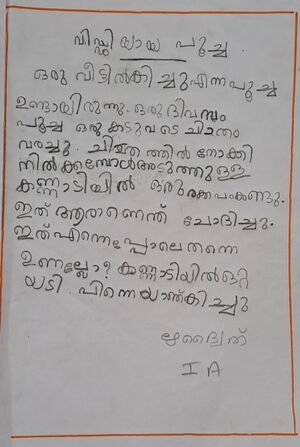 വിഡ്ഢിയായ പൂച്ച .
ഒരു വീട്ടിൽകിച്ചുഎന്നപൂച്ച
ഉണ്ടായിരുന്നു. ഒരുദിവസം
പൂച്ച ഒരുകടുവടെ ചിത്രം
വരച്ചു. ചിത്രത്തിൽ നോക്കി
നിൽക്കമ്പോൾഅടുത്തുള്ള
കണ്ണാടിയിൽ ഒരു കണ്ടു.
ഇത് ആരാണെന്ത് ചോദിച്ചു.
ഇത്എന്നെപ്പോലെതന്നെ
ഉണ്ടല്ലോ? കണ്ണാടിയിൽഒറ്റ
യടി. പിന്നെയാഞ്കിച്ചു
I A